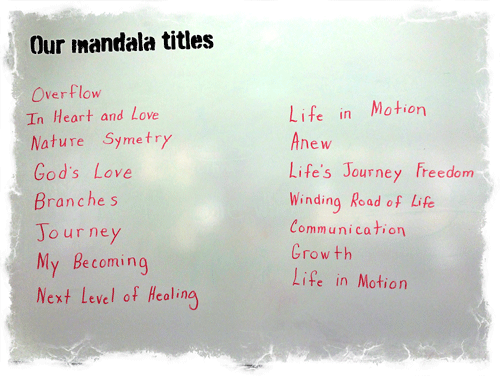 Our mandala titles
Overflow
In Heart and Love
Nature Symetry
God's Love
Branches
Journey
My Becoming
Next Level of Healing
Life in Motion
Anew
Life's Journey Freedom
Winding Road of Life
Communication
Growth
Life in Motion